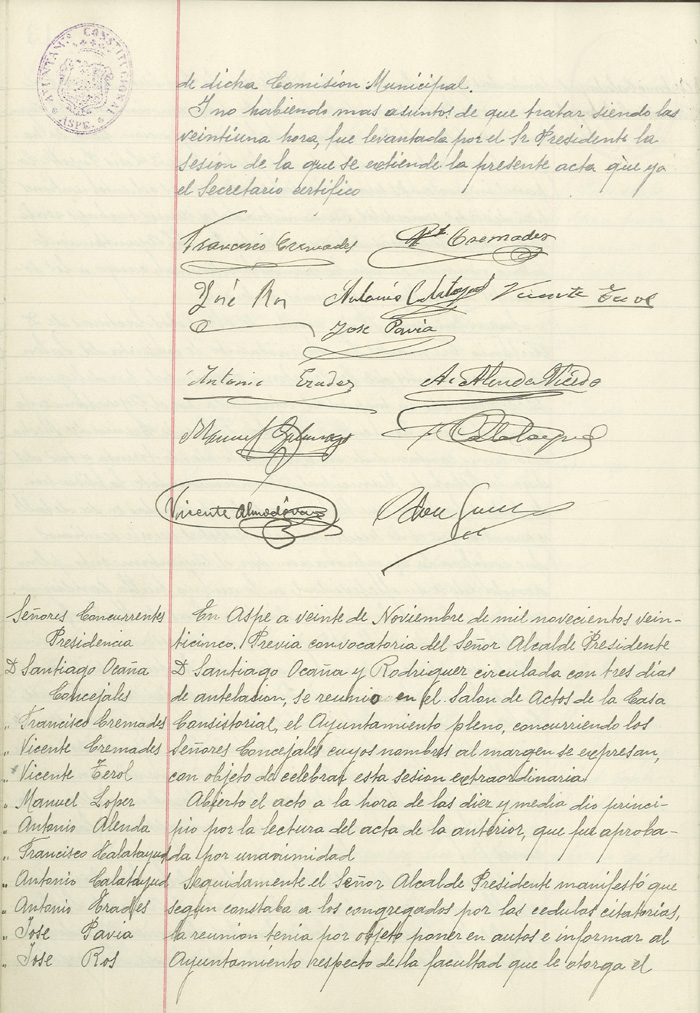 AYUNTAMº CONSTITUCIONAL
ASPE.
de dicha Comisión Municipal.
Y no habiendo mas asuntos de que tratar siendo las
veintiuna hora, fue levantada por el Sr Presidente la
sesion de la que se extiende la presente acta que yo
el Secretario certifico
Francisco Cremades
Vte Cremades
José Ros
Antonio Calatayud
Vicente Terol
Jose Pavia
Antonio Erades
A. Alenda
Manuel
F Calatayud
Vicente Almodóvar
Señores Concurrentes
Presidencia
D Santiago Ocaña
Concejales
" Francisco Cremades
" Vicente Cremades
" Vicente Terol
" Manuel Lopez
" Antonio Alenda
" Francisco Calatayud
" Antonio Calatayud
" Antonio Erades
" Jose Pavia
" Jose Ros
En Aspe a veinte de Noviembre de mil novecientos vein-
ticinco. Previa convocatoria del Señor Alcalde Presidente
D Santiago Ocaña y Rodriguez circulada con tres dias
de antelacion, se reunio en el Salon de Actos de la Casa
Consistorial, el Ayuntamiento pleno, concurriendo los
Señores Concejales cuyos nombres al margen se expresan,
con objeto de celebrar esta sesion extraordinaria
Abierto el acto a la hora de las diez y media dio princi-
pio por la lectura del acta de la anterior, que fue aproba-
da por unanimidad
Seguidamente el Señor Alcalde Presidente manifestó que
segun constaba a los congregados por las cedulas citatorias,
la reunion tenia por objeto poner en autos e informar al
Ayuntamiento respecto de la facultad que le otorga el